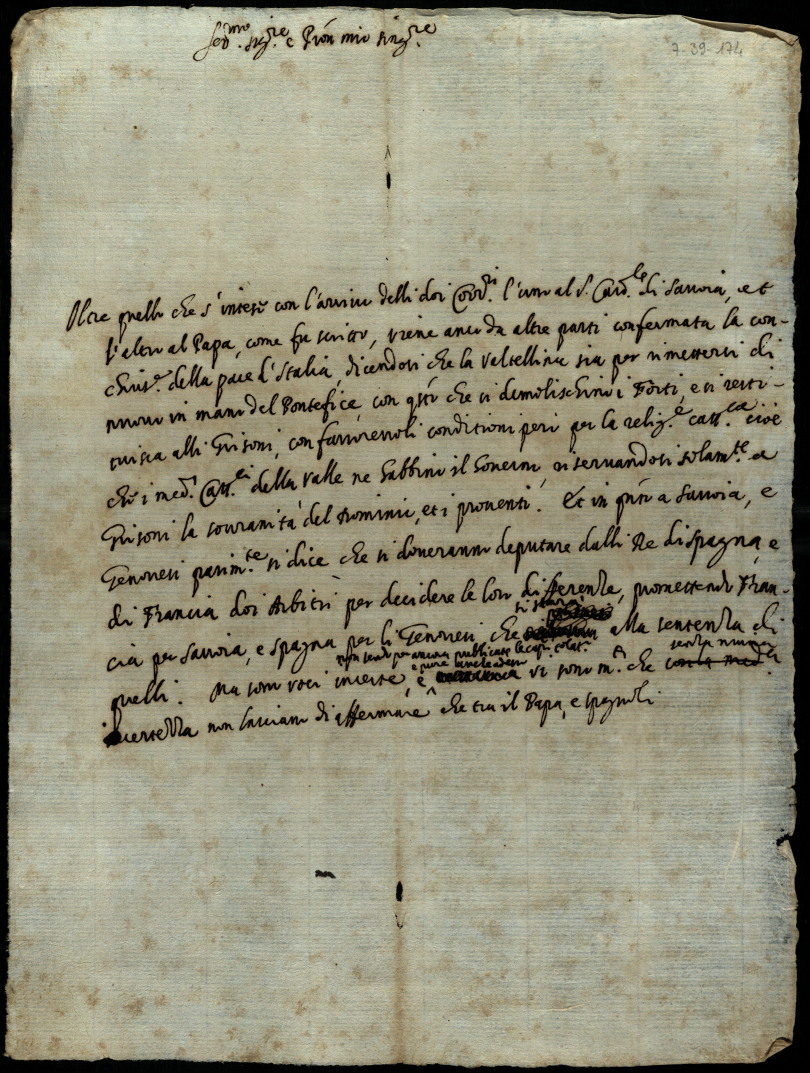 Ser.mo sig.re e Pron mio sing.re
7-39-174
Oltre quello che s'intese con l'arrivo delli doi Corr.i l'uno al S. Card.le di Savoia, et
l'altro al Papa, come fu scritto, viene anco da altre parti confermata la con-
clus.e della pace d'Italia, dicendosi che la Valtellina sia per rimettersi di
nuovo in mano del Pontefice, con q.sto che si demolischino i Forti, e si resti-
tuisca alli Grisoni, con favorevoli conditioni però per la relig.e catt.ca cioè
che i med.i Catt.ci della Valle ne habbino il Governo, riservandosi solam.te a
Grisoni la sovranità del Dominio, et i proventi. Et in q.to a Savoia, e
Genovesi parim.te si dice che si doveranno deputare dalli Re di Spagna, e
di Francia doi Arbitri per decidere le loro differenze, promettendo Fran-
si starà
cia per Savoia, e Spagna per li Genovesi che alla sentenza di
non sendo per ancora publicate le cap. senza
quelli. Ma sono voci incerte, e vi sono m.ti che
incertezza non lasciano di affermare che tra il Papa, e Spagnoli